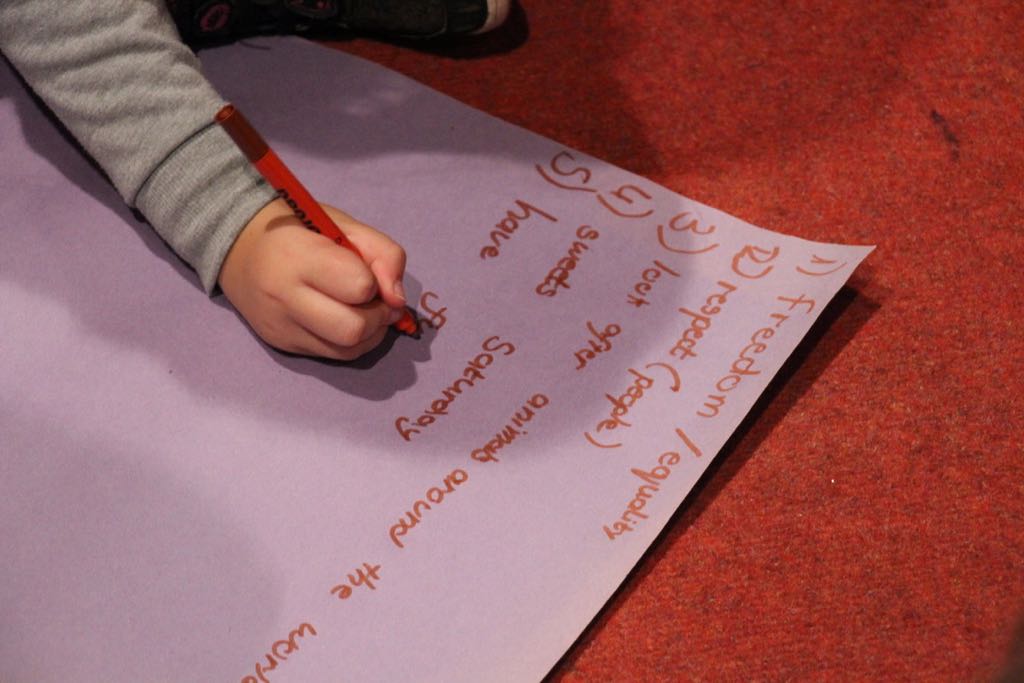 1) freedom / equality
2) respect (people)
3) look after animals around the world
4) sweets Saturday
5) have